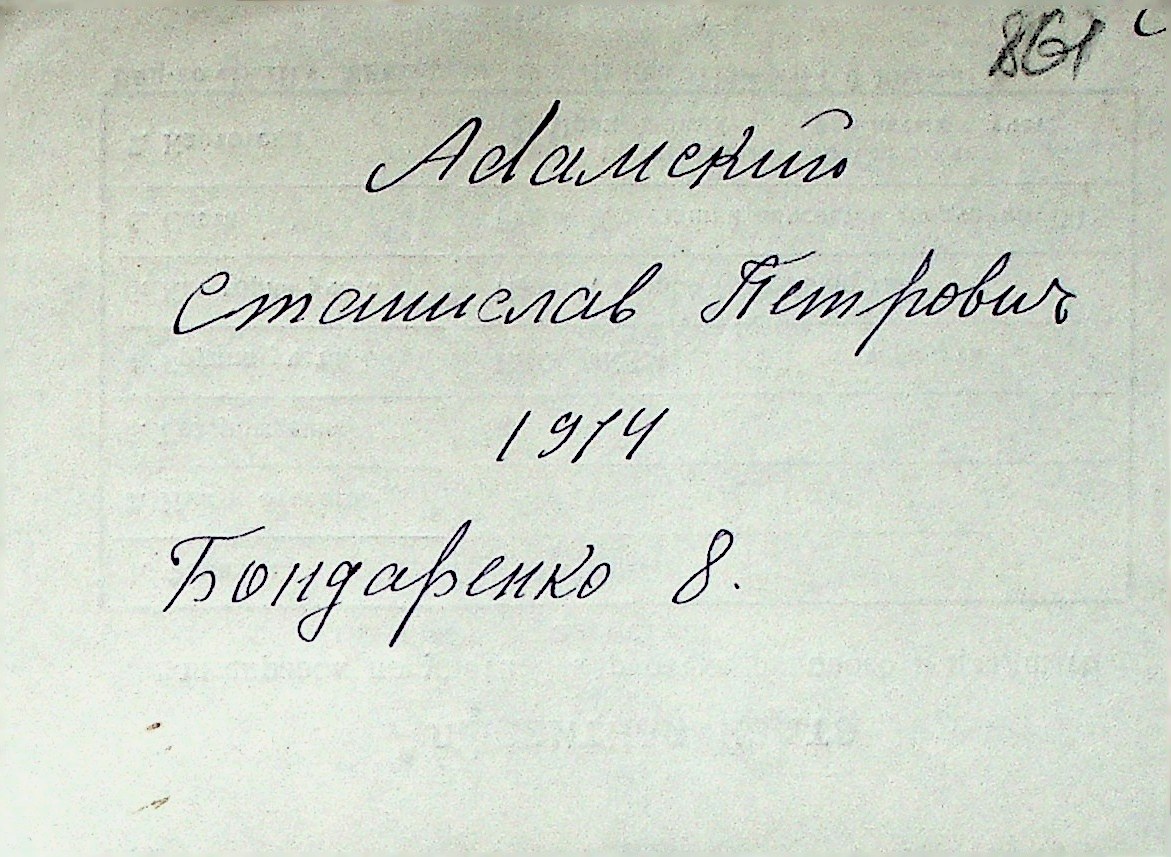 861 с
Адамский
Станислав Петрович
1914
Бондаренко 8.